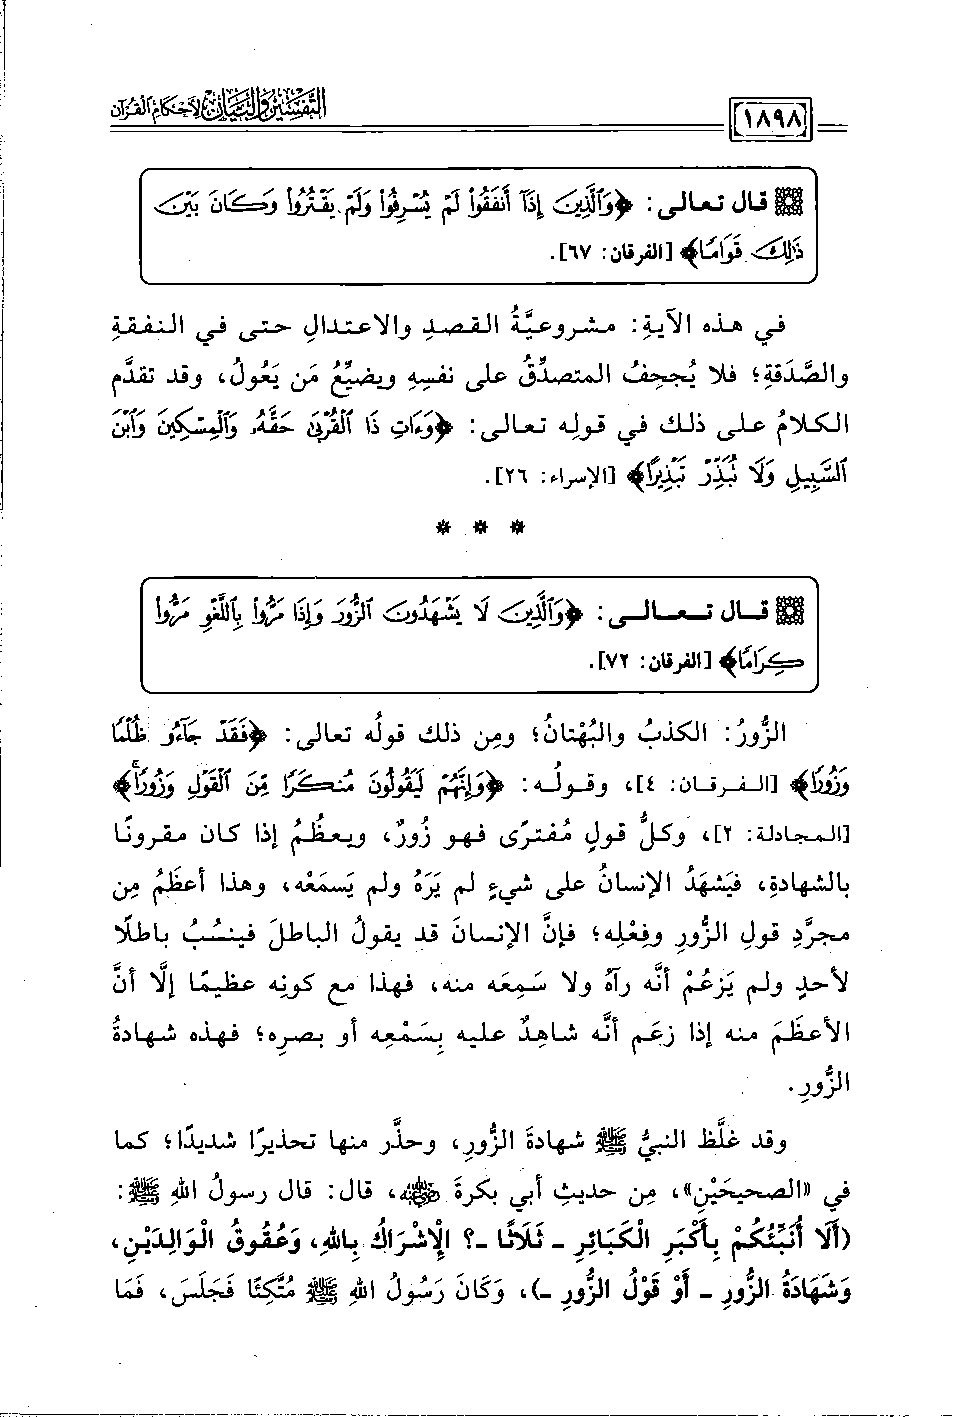 التفسير والبيان لأحكام القرآن
١٨٩٨
قال تعالى: ﴿وَٱلَّذِينَ إِذَآ أَنفَقُوا۟ لَمْ يُسْرِفُوا۟ وَلَمْ يَقْتُرُوا۟ وَكَانَ بَيْنَ
ذَٰلِكَ قَوَامًا﴾ [الفرقان: ٦٧].
في هذه الآيةِ: مشروعيَّةُ القصدِ والاعتدالِ حتى في النفقةِ
والصَّدَقةِ؛ فلا يُجحِفُ المتصدِّقُ على نفسِهِ ويضيِّعُ مَن يَعُولُ، وقد تقدَّم
الكلامُ على ذلك في قولِه تعالى: ﴿وَءَاتِ ذَا ٱلْقُرْبَىٰ حَقَّهُۥ وَٱلْمِسْكِينَ وَٱبْنَ
ٱلسَّبِيلِ وَلَا تُبَذِّرْ تَبْذِيرًا﴾ [الإسراء: ٢٦].
* * *
قال تعالى: ﴿وَٱلَّذِينَ لَا يَشْهَدُونَ ٱلزُّورَ وَإِذَا مَرُّوا۟ بِٱللَّغْوِ مَرُّوا۟
كِرَامًا﴾ [الفرقان: ٧٢].
الزُّورُ: الكذبُ والبُهْتانُ؛ ومِن ذلك قولُه تعالى: ﴿فَقَدْ جَآءُو ظُلْمًا
وَزُورًا﴾ [الفرقان: ٤]، وقولُه: ﴿وَإِنَّهُمْ لَيَقُولُونَ مُنكَرًا مِّنَ ٱلْقَوْلِ وَزُورًا ۚ﴾
[المجادلة: ٢]، وكلُّ قولٍ مُفترًى فهو زُورٌ، ويعظُمُ إذا كان مقرونًا
بالشهادةِ، فيَشهَدُ الإنسانُ على شيءٍ لم يَرَهُ ولم يَسمَعْه، وهذا أعظَمُ مِن
مجرَّدِ قولِ الزُّورِ وفِعْلِه؛ فإنَّ الإنسانَ قد يقولُ الباطلَ فينسُبُ باطلًا
لأحدٍ ولم يَزعُمْ أنَّه رآهُ ولا سَمِعَه منه، فهذا مع كونِه عظيمًا إلَّا أنَّ
الأعظَمَ منه إذا زعَم أنَّه شاهِدٌ عليه بِسَمْعِه أو بصرِه؛ فهذه شهادةُ
الزُّورِ.
وقد غلَّظ النبيُّ ﷺ شهادةَ الزُّورِ، وحذَّر منها تحذيرًا شديدًا؛ كما
في «الصحيحَيْنِ»، مِن حديثِ أبي بكرةَ رضي الله عنه، قال: قال رسولُ اللهِ ﷺ:
(أَلَا أُنَبِّئُكُمْ بِأَكْبَرِ الْكَبَائِرِ - ثَلَاثًا -؟ الْإِشْرَاكُ بِاللهِ، وَعُقُوقُ الْوَالِدَيْنِ،
وَشَهَادَةُ الزُّورِ - أَوْ قَوْلُ الزُّورِ -)، وَكَانَ رَسُولُ اللهِ ﷺ مُتَّكِئًا فَجَلَسَ، فَمَا